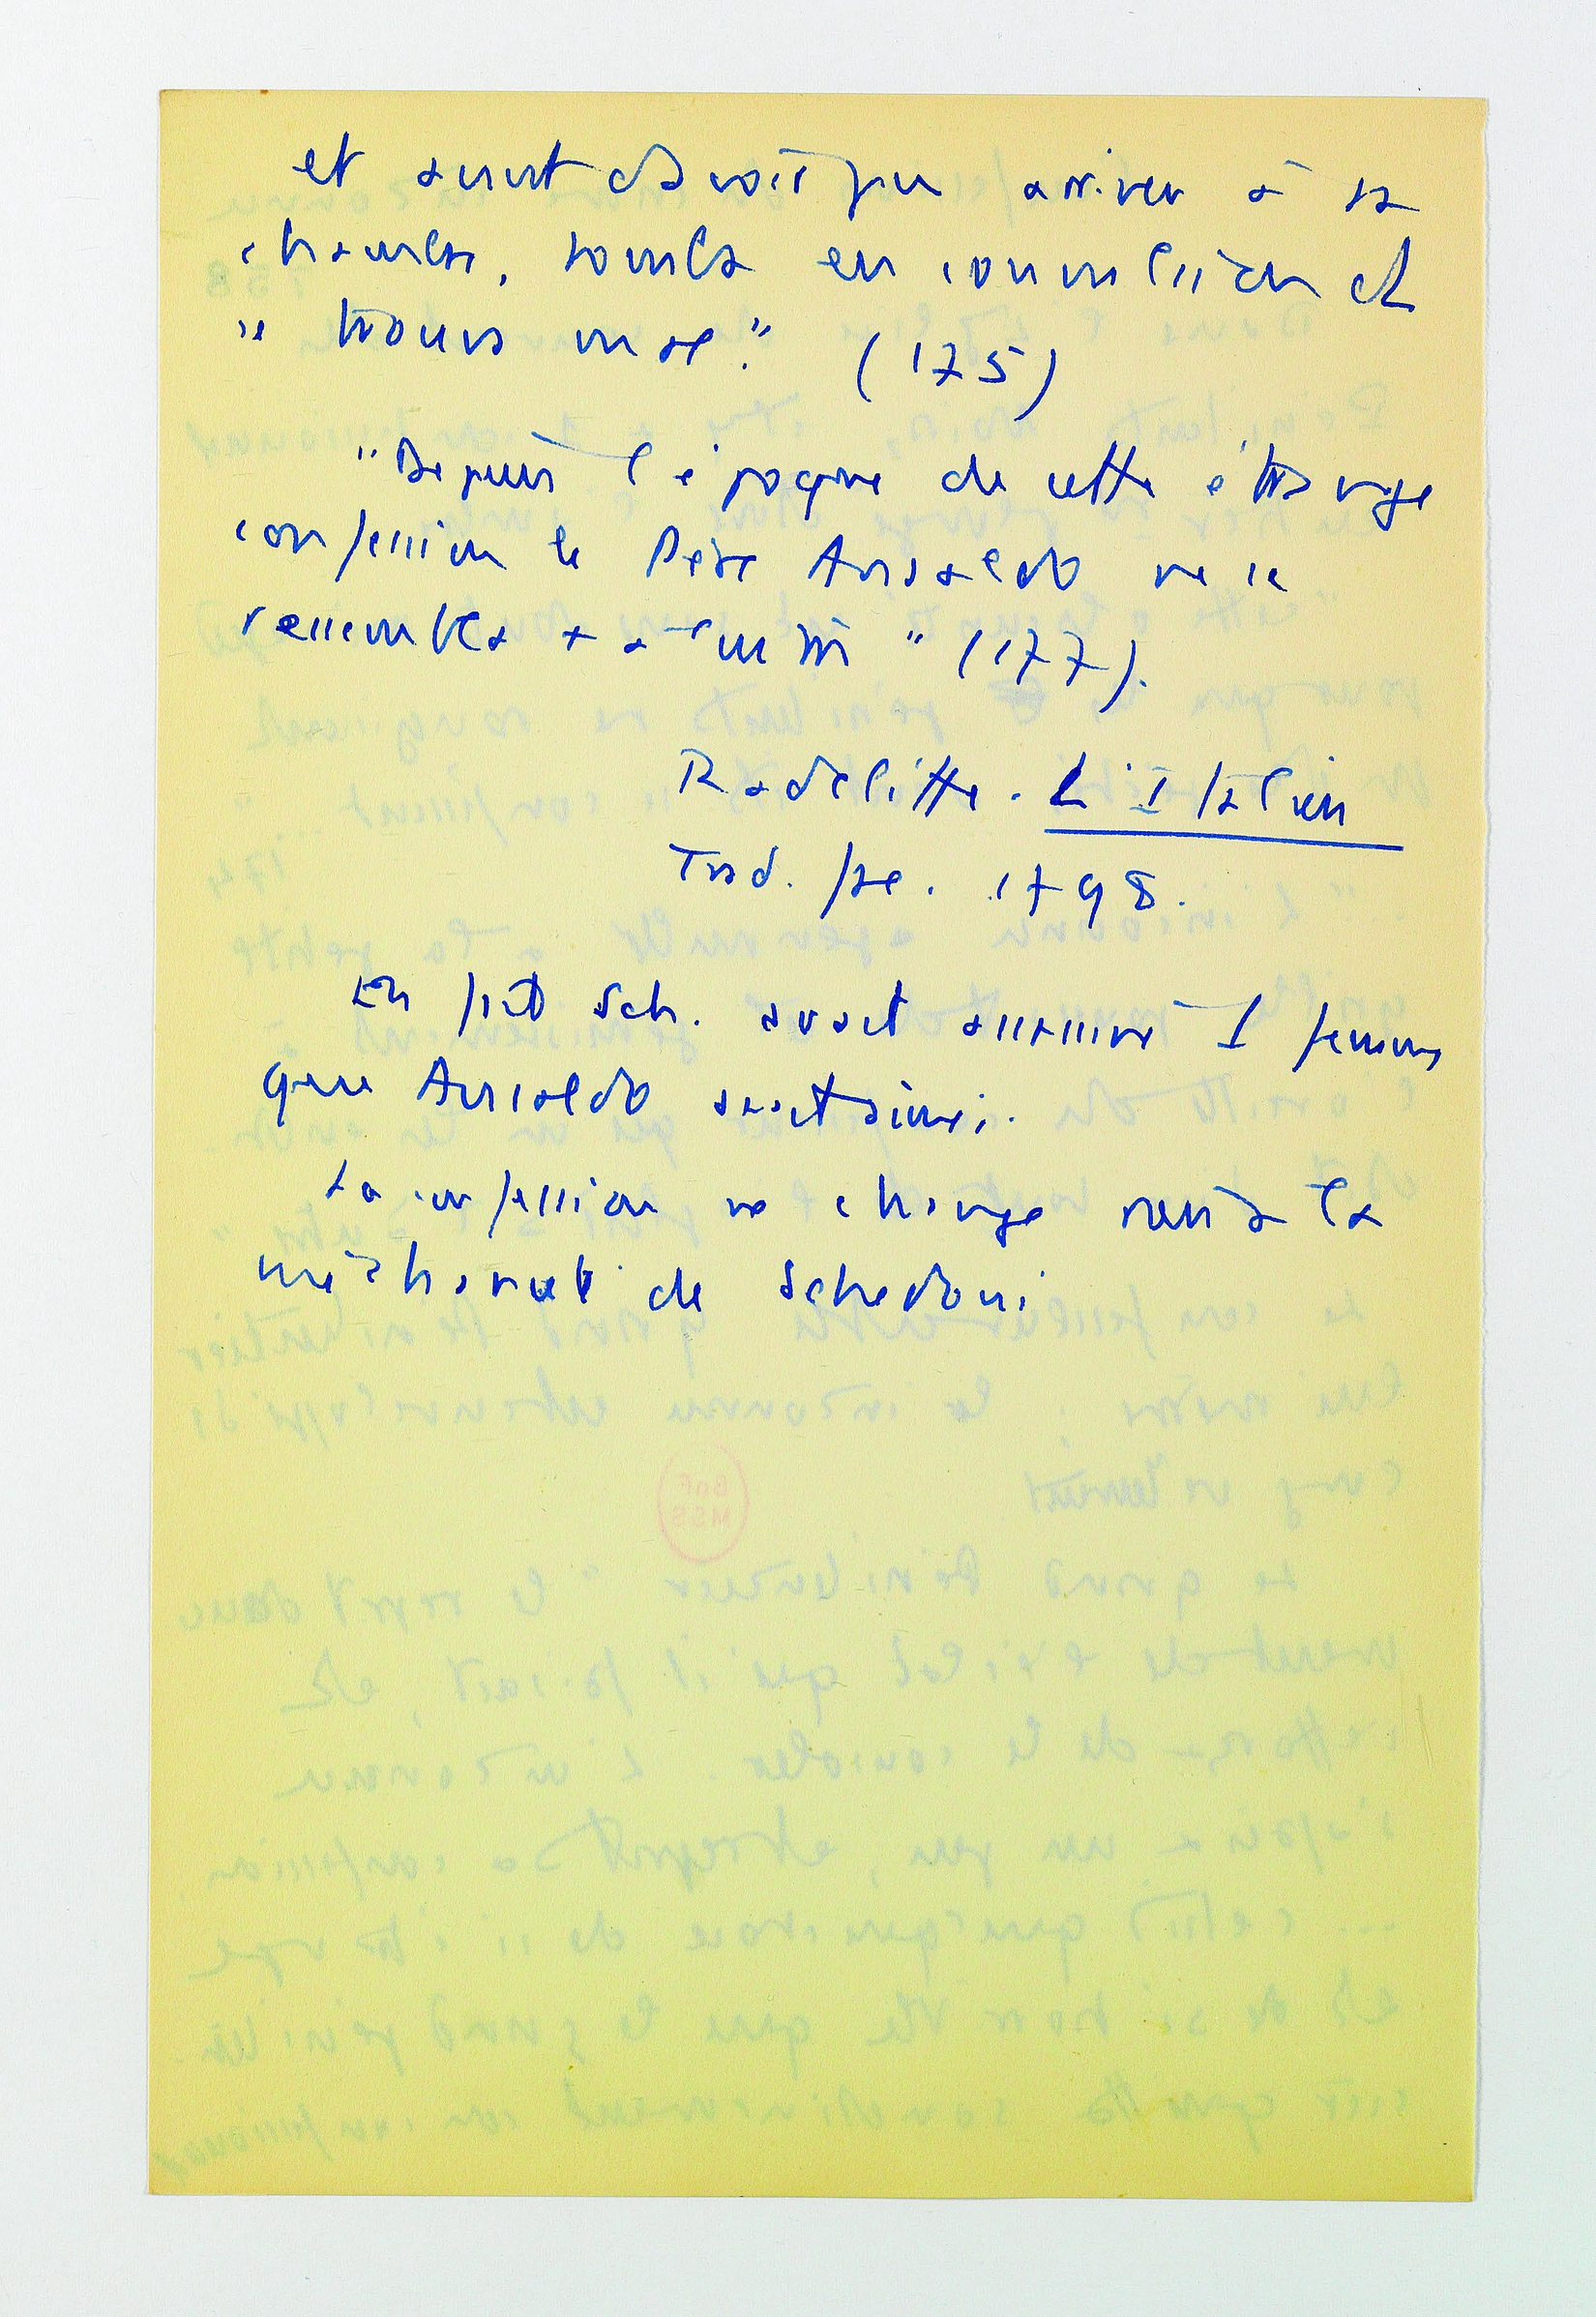 et avant d'avoir pu arriver à sa
chambre, tomba en convulsion et
se trouva mal." (175)
"Depuis l'époque de cette étrange
confession le Père Ansaldo ne se
ressembla + à lui m" (177).
Radcliffe. L'Italien
Trad. fse. 1798.
En fait Sch. avait assassiné 1 femme
que Ansaldo avait aimé.
La confession ne change rien à la
méchanceté de Schedoni